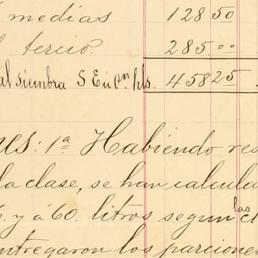 medias 128 50
tercio 285.00
al siembra S E ú Cm hls. 458 25
es: 1ª Habiendo res
la clase, se han calcula
y á 60. litros segun las cl
ntregaron los parcione